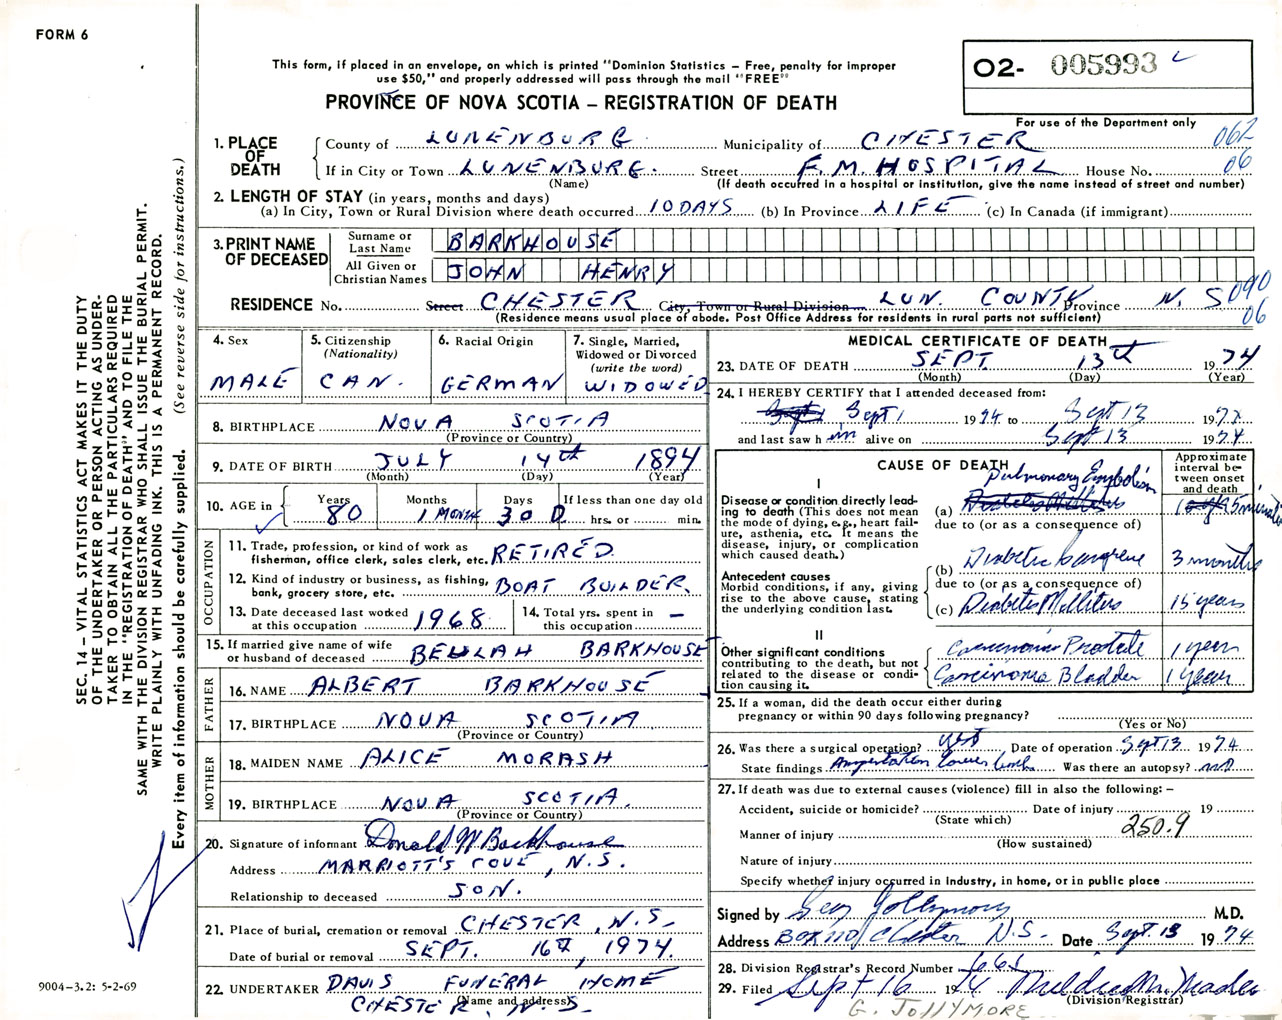 FORM 6
This form, if placed in an envelope, on which is printed "Dominion Statistics – Free, penalty for improper
use $50," and properly addressed will pass through the mail "FREE"
PROVINCE OF NOVA SCOTIA – REGISTRATION OF DEATH
O2- 005993
For use of the Department only
062
06
1. PLACE OF DEATH
County of LUNENBURG Municipality of CHESTER
If in City or Town LUNENBURG. Street F. M. HOSPITAL House No.
(Name) (If death occurred in a hospital or institution, give the name instead of street and number)
2. LENGTH OF STAY (in years, months and days)
(a) In City, Town or Rural Division where death occurred 10 DAYS (b) In Province LIFE (c) In Canada (if immigrant)
3. PRINT NAME OF DECEASED
Surname or Last Name BARKHOUSE
All Given or Christian Names JOHN HENRY
RESIDENCE No. Street CHESTER City, Town or Rural Division LUN. COUNTY Province N. S 090
(Residence means usual place of abode. Post Office Address for residents in rural parts not sufficient) 06
4. Sex
MALE
5. Citizenship
(Nationality)
CAN.
6. Racial Origin
GERMAN
7. Single, Married,
Widowed or Divorced
(write the word)
WIDOWED
8. BIRTHPLACE NOVA SCOTIA
(Province or Country)
9. DATE OF BIRTH JULY 14th 1894
(Month) (Day) (Year)
10. AGE in Years Months Days If less than one day old
80 1 MONTH 30 D hrs. or min.
OCCUPATION
11. Trade, profession, or kind of work as
fisherman, office clerk, sales clerk, etc. RETIRED.
12. Kind of industry or business, as fishing,
bank, grocery store, etc. BOAT BUILDER.
13. Date deceased last worked
at this occupation 1968
14. Total yrs. spent in
this occupation –
15. If married give name of wife
or husband of deceased BEULAH BARKHOUSE
FATHER
16. NAME ALBERT BARKHOUSE
17. BIRTHPLACE NOVA SCOTIA
(Province or Country)
MOTHER
18. MAIDEN NAME ALICE MORASH
19. BIRTHPLACE NOVA SCOTIA.
(Province or Country)
20. Signature of informant Donald W Barkhouse
Address MARRIOTT'S COVE, N.S.
Relationship to deceased SON.
21. Place of burial, cremation or removal CHESTER, N.S.
Date of burial or removal SEPT. 16th, 1974.
22. UNDERTAKER DAVIS FUNERAL HOME
(Name and address)
CHESTER, N.S.
MEDICAL CERTIFICATE OF DEATH
23. DATE OF DEATH SEPT. 13th 1974
(Month) (Day) (Year)
24. I HEREBY CERTIFY that I attended deceased from:
Sept 1 1974 to Sept 13 1974
and last saw him alive on Sept 13 1974
CAUSE OF DEATH
Approximate
interval be-
tween onset
and death
I
Disease or condition directly lead-
ing to death (This does not
mean the mode of dying, e.g., heart fail-
ure, asthenia, etc. It means the
disease, injury, or complication
which caused death.)
Pulmonary Embolism
(a) Diabetes Mellitus 15 minutes
due to (or as a consequence of)
Antecedent causes
Morbid conditions, if any, giving
rise to the above cause, stating
the underlying condition last.
(b) Diabetic Gangrene 3 months
due to (or as a consequence of)
(c) Diabetes Mellitus 15 years
II
Other significant conditions
contributing to the death, but not
related to the disease or condi-
tion causing it.
Carcinoma Prostate 1 year
Carcinoma Bladder 1 year
25. If a woman, did the death occur either during
pregnancy or within 90 days following pregnancy?
(Yes or No)
26. Was there a surgical operation? yes Date of operation Sept 13 1974.
State findings Amputation lower limb Was there an autopsy? no
27. If death was due to external causes (violence) fill in also the following: –
Accident, suicide or homicide? Date of injury 19
(State which)
250.9
Manner of injury
(How sustained)
Nature of injury
Specify whether injury occurred in industry, in home, or in public place
Signed by Geo Jollymore M.D.
Address Box 110 Chester N.S. Date Sept. 13 1974
28. Division Registrar's Record Number 661
29. Filed Sept 16 1974
(Division Registrar)
G. JOLLYMORE
SEC. 14 – VITAL STATISTICS ACT MAKES IT THE DUTY
OF THE UNDERTAKER OR PERSON ACTING AS UNDER-
TAKER TO OBTAIN ALL THE PARTICULARS REQUIRED
IN THE "REGISTRATION OF DEATH" AND TO FILE THE
SAME WITH THE DIVISION REGISTRAR WHO SHALL ISSUE THE BURIAL PERMIT.
WRITE PLAINLY WITH UNFADING INK. THIS IS A PERMANENT RECORD.
Every item of information should be carefully supplied. (See reverse side for instructions.)
9004-3.2: 5-2-69